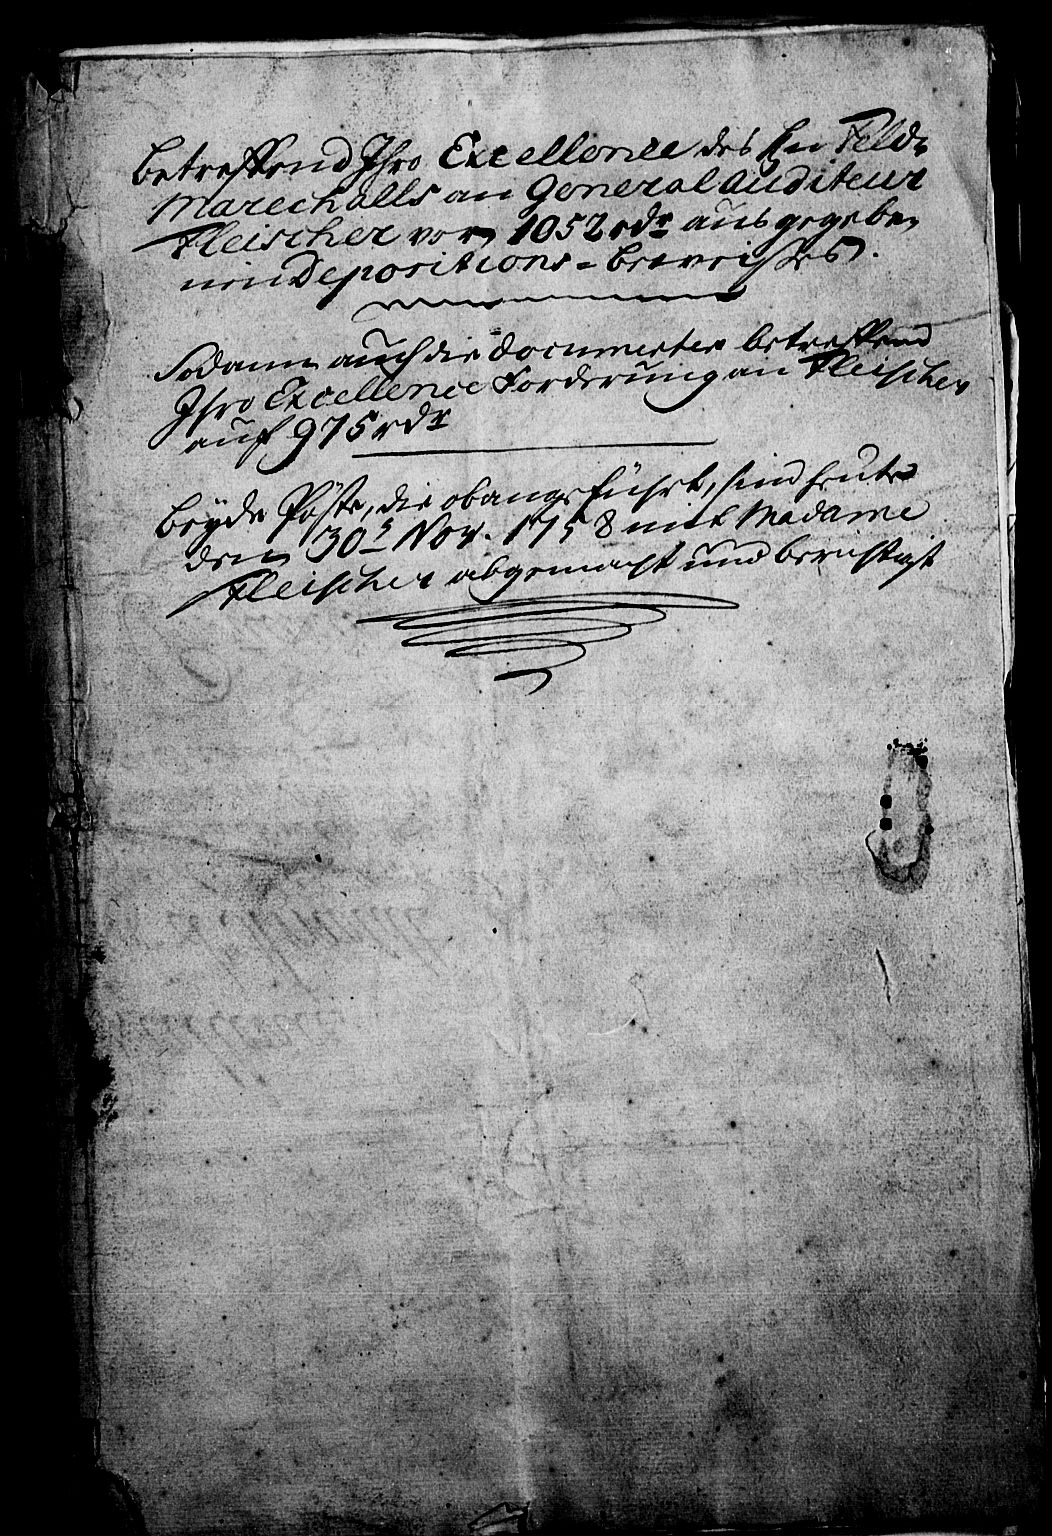 Betreffend Ihro Excellence des Hn Feld-
Marechalls an General Auditeur
Fleischer von 1052 rdr ausgegebe-
nen Depositions-Beweises.
Sodann auch die documenten betreffend
Ihro Excellence Forderung an Fleischer
auf 975 rdr
Beyde Pöste, die obangeführt, sind heute
den 30t Nov. 1758 mit Madame
Fleischer abgemacht und berichtigt